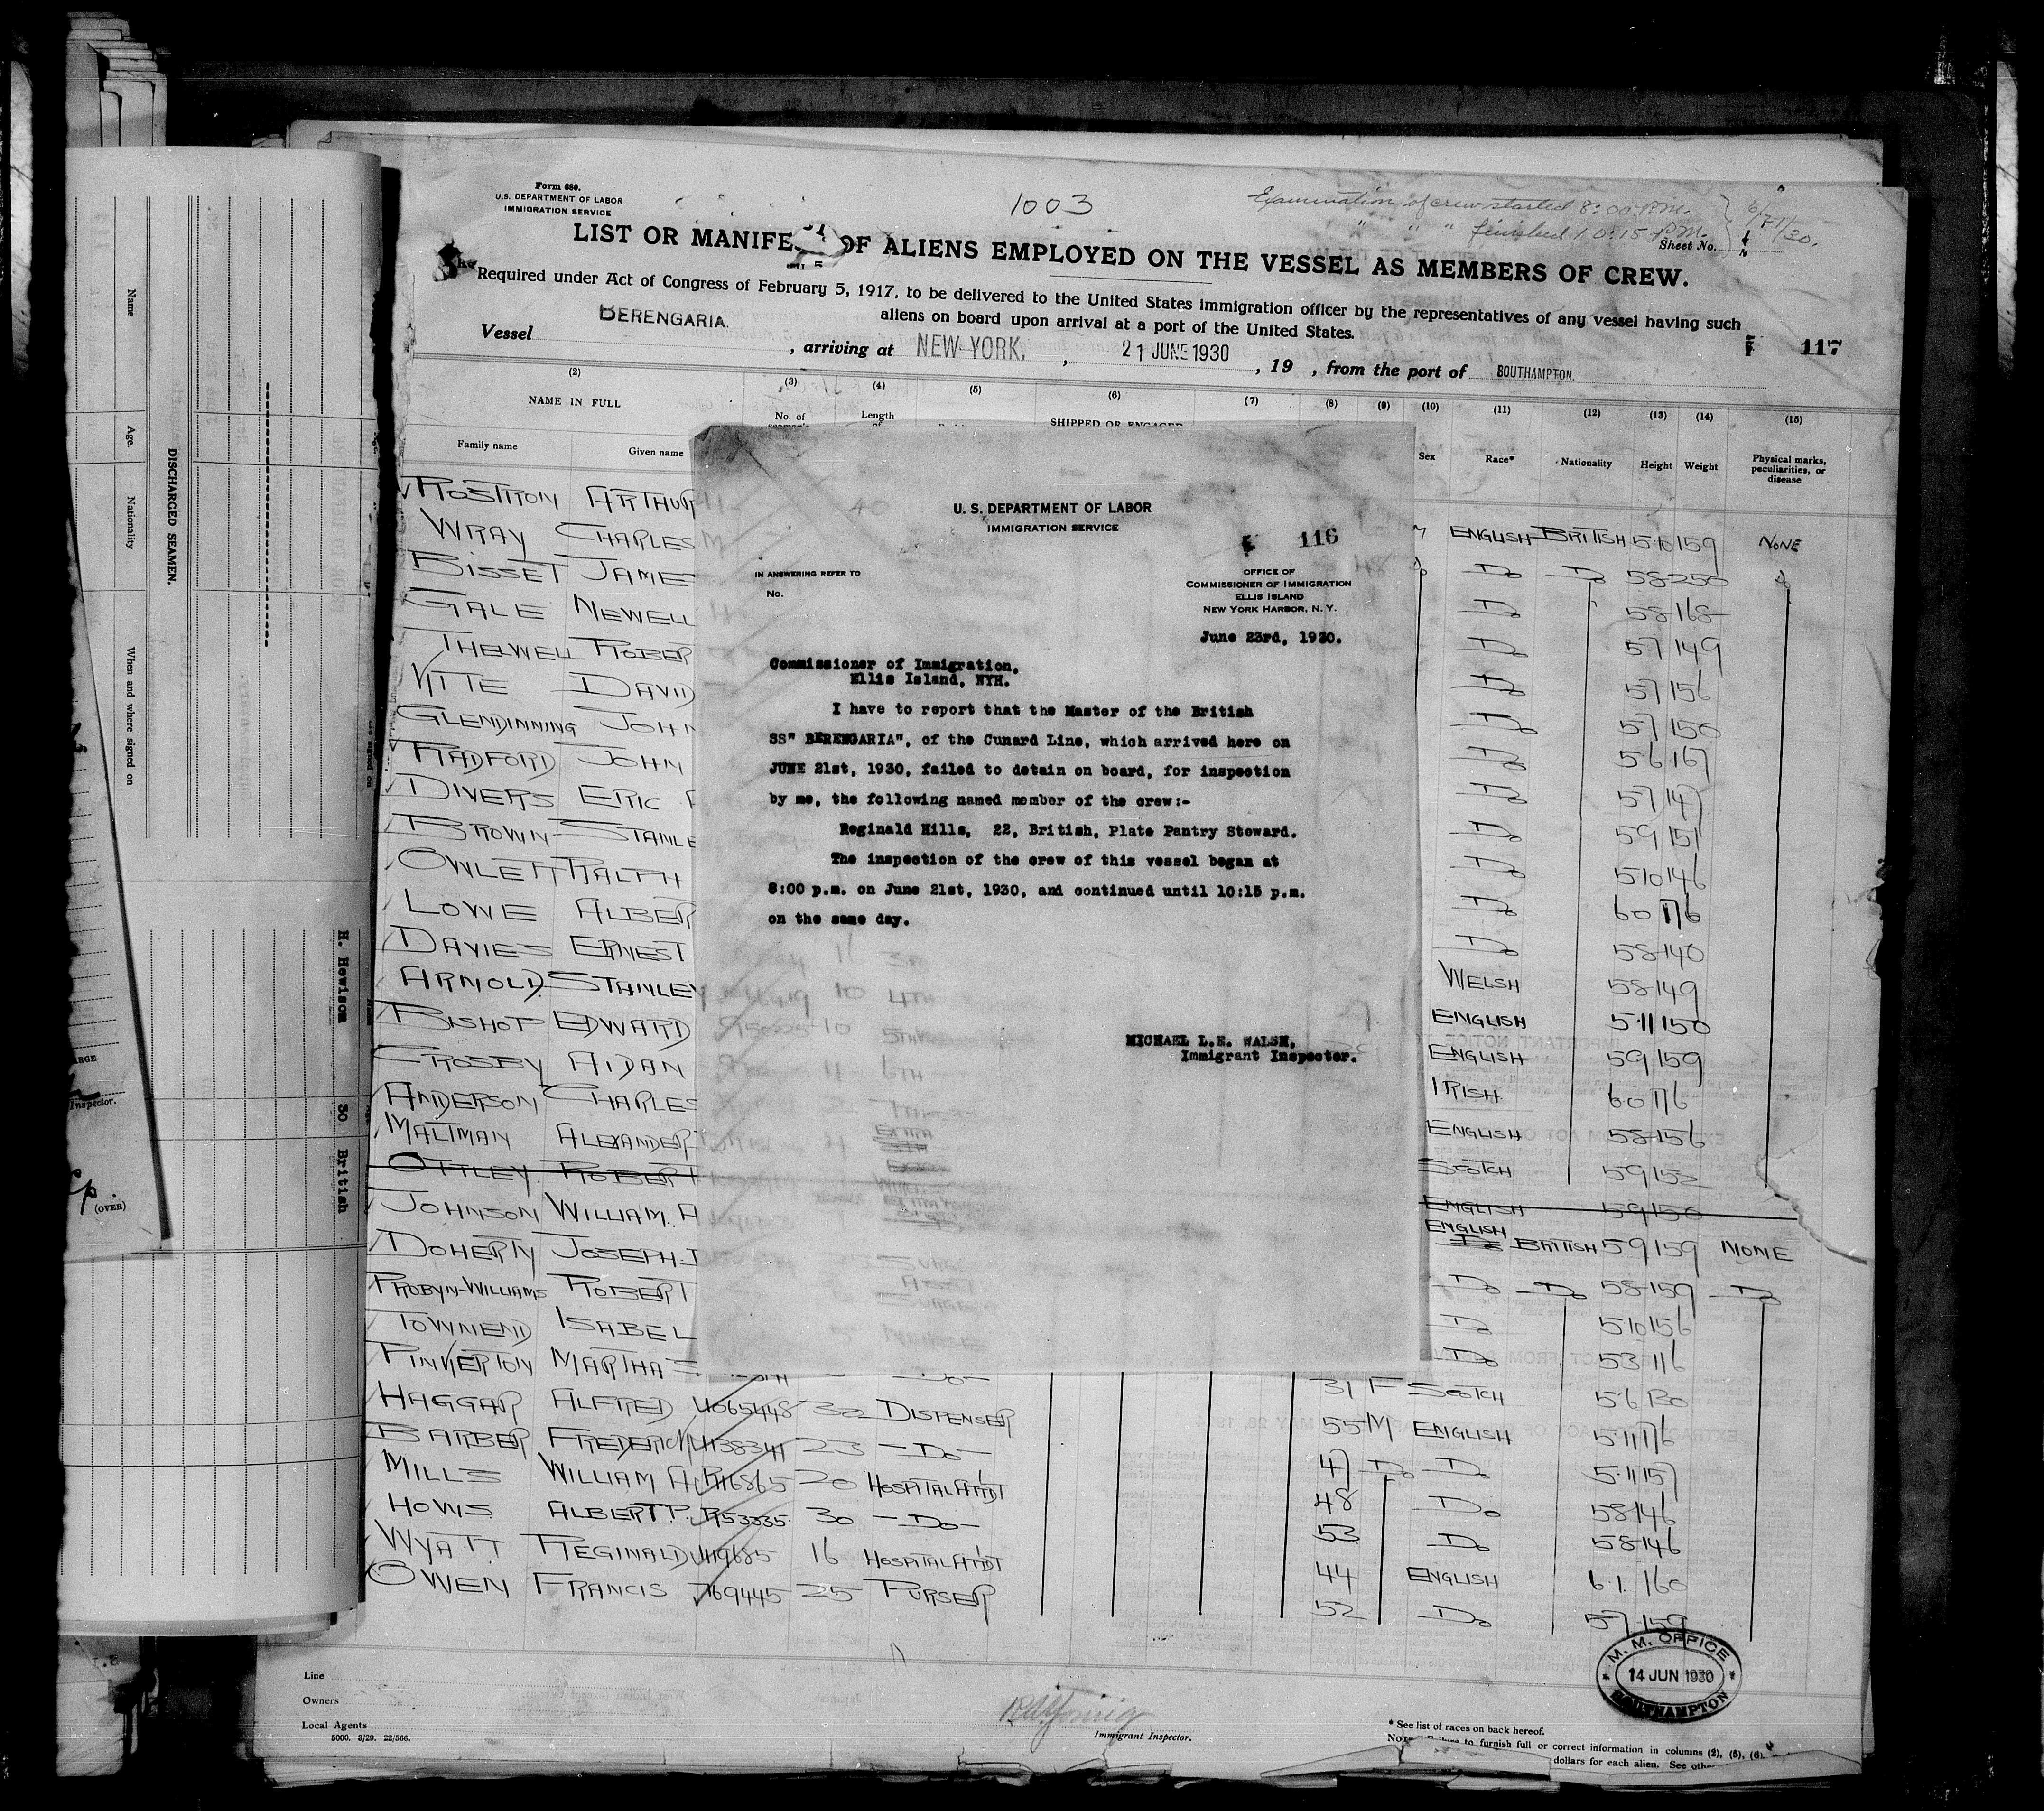 Form 680.
U.S. DEPARTMENT OF LABOR
IMMIGRATION SERVICE
1003
Examination of crew started 8:00 P.M.
" " " finished 10:15 P.M.
6/21/30.
Sheet No.
LIST OR MANIFE OF ALIENS EMPLOYED ON THE VESSEL AS MEMBERS OF CREW.
Required under Act of Congress of February 5, 1917, to be delivered to the United States immigration officer by the representatives of any vessel having such
aliens on board upon arrival at a port of the United States.
Vessel BERENGARIA. , arriving at NEW YORK. , 21 JUNE 1930 , 19 , from the port of SOUTHAMPTON.
117
(2) (3) (4) (5) (6) (7) (8) (9) (10) (11) (12) (13) (14) (15)
NAME IN FULL No. of Length SHIPPED OR ENGAGED
Family name Given name Sex Race* Nationality Height Weight Physical marks, peculiarities, or disease
ROSTRON ARTHUR
WRAY CHARLES
BISSET JAME
GALE NEWELL
THELWELL ROBER
WITTE DAVID
GLENDINNING JOHN
RADFORD JOHN
DIVERS ERIC
BROWN STANLE
OWLETT RALPH
LOWE ALBER
DAVIES ERNEST
ARNOLD STANLEY
BISHOP EDWARD
CROSBY AIDAN
ANDERSON CHARLES
MALTMAN ALEXANDER
OTTLEY ROBERT
JOHNSON WILLIAM. A
DOHERTY JOSEPH.
PROBYN-WILLIAMS ROBERT
TOWNEND ISABEL
PINKERTON MARTHA
HAGGAR ALFRED 1065448 32 DISPENSER
BARBER FREDERICK 1138341 23 - Do -
MILLS WILLIAM A R116865 20 HOSPITAL ATTDT
HOWS ALBERT P. R53335 30 - Do -
WYATT REGINALD 1119685 16 HOSPITAL ATTDT
OWEN FRANCIS 769445 25 PURSER
U. S. DEPARTMENT OF LABOR
IMMIGRATION SERVICE
116
IN ANSWERING REFER TO
No.
OFFICE OF
COMMISSIONER OF IMMIGRATION
ELLIS ISLAND
NEW YORK HARBOR, N. Y.
June 23rd, 1930.
Commissioner of Immigration,
Ellis Island, NYH.
I have to report that the Master of the British
SS" BERENGARIA", of the Cunard Line, which arrived here on
JUNE 21st, 1930, failed to detain on board, for inspection
by me, the following named member of the crew:-
Reginald Hills, 22, British, Plate Pantry Steward.
The inspection of the crew of this vessel began at
8:00 p.m. on June 21st, 1930, and continued until 10:15 p.m.
on the same day.
MICHAEL L.E. WALSH,
Immigrant Inspector.
ENGLISH BRITISH 5·10 159 NONE
Do Do 58 250 Do
Do 58 168
Do 57 149
Do 57 156
Do 57 150
Do 56 167
Do 57 147
Do 59 151
Do 510 146
Do 60 176
Do 58 140
WELSH 58 149
ENGLISH 5·11 150
ENGLISH 59 159
IRISH 6·0 176
ENGLISH 58 156
SCOTCH 59 152
ENGLISH 59 150
ENGLISH BRITISH 59 159 NONE
Do Do 58 159 Do
Do 510 156
Do 53 116
31 F SCOTCH 5·6 130
55 M ENGLISH 5·11 176
47 Do Do 5·11 157
48 Do 58 146
53 Do 58 146
44 ENGLISH 6·1. 160
52 Do 57 159
M. M. OFFICE
14 JUN 1930
SOUTHAMPTON
Line
Owners
Local Agents
5000. 3/29. 22/566.
Immigrant Inspector.
* See list of races on back hereof.
to furnish full or correct information in columns (2), (5), (6)
dollars for each alien. See
Name
Age.
Nationality
When and where signed on
DISCHARGED SEAMEN.
H. Hewison 30 British
Inspector.
(OVER)